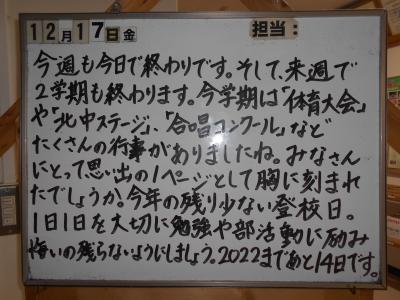 12月17日金 担当:
今週も今日で終わりです。そして、来週で
2学期も終わります。今学期は「体育大会」
や「北中ステージ」、「合唱コンクール」など
たくさんの行事がありましたね。みなさん
にとって思い出の1ページとして胸に刻まれ
たでしょうか。今年の残り少ない登校日。
1日1日を大切に勉強や部活動に励み
悔いの残らないようにしましょう。2022まであと14日です。